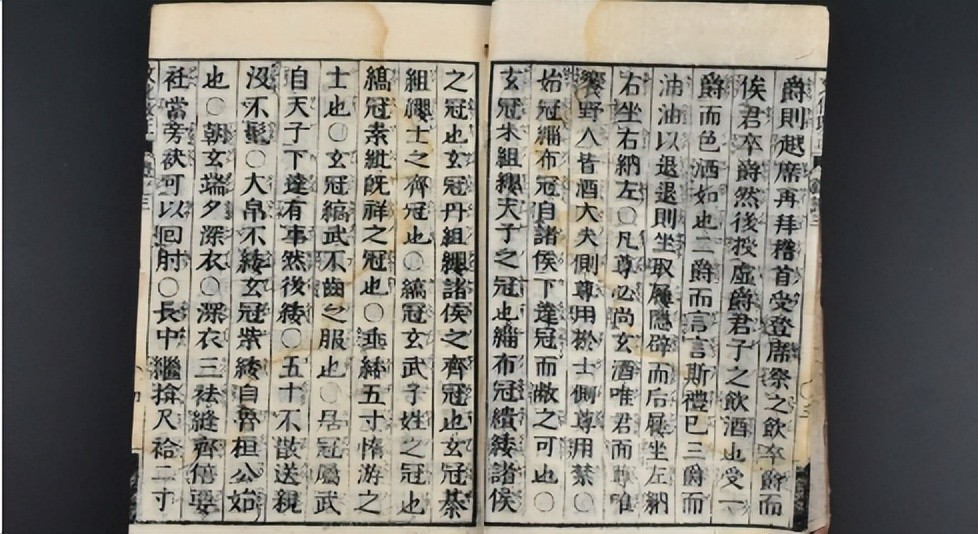 爵則越席再拜稽首受登席祭之飲卒爵而
俟君卒爵然後授虛爵君子之飲酒也受一
爵而色洒如也二爵而言言斯禮已三爵而
油油以退退則坐取屨隱辟而后屨坐左納
右坐右納左○凡尊必尚玄酒唯君面尊唯
饗野人皆酒大夫側尊用棜士側尊用禁○
始冠緇布冠自諸侯下達冠而敝之可也○
玄冠朱組纓天子之冠也緇布冠繢緌諸侯
之冠也玄冠丹組纓諸侯之齊冠也玄冠綦
組纓士之齊冠也○縞冠玄武子姓之冠也
縞冠素紕既祥之冠也○垂緌五寸惰游之
士也○玄冠縞武不齒之服也○居冠屬武
自天子下達有事然後緌○五十不散送親
沒不髦○大帛不緌玄冠紫緌自魯桓公始
也○朝玄端夕深衣○深衣三袪縫齊倍要
衽當旁袂可以回肘○長中繼揜尺袷二寸